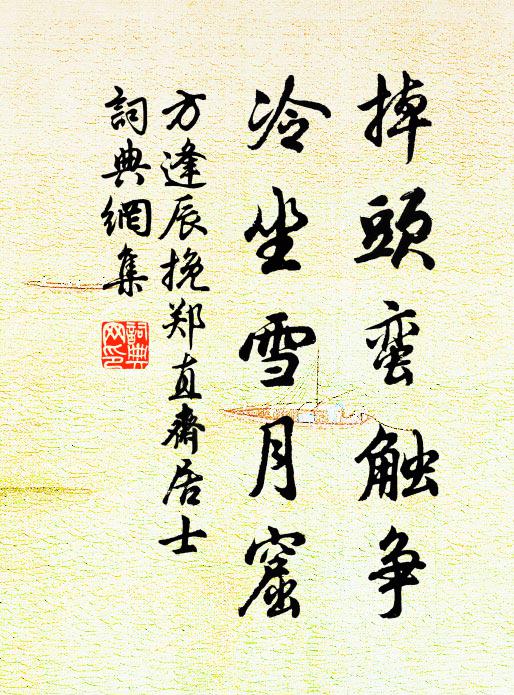 掉頭蛮触争
冷坐雪月窟
方逢辰挽郑直齋居士
詞典網集
詞典网印